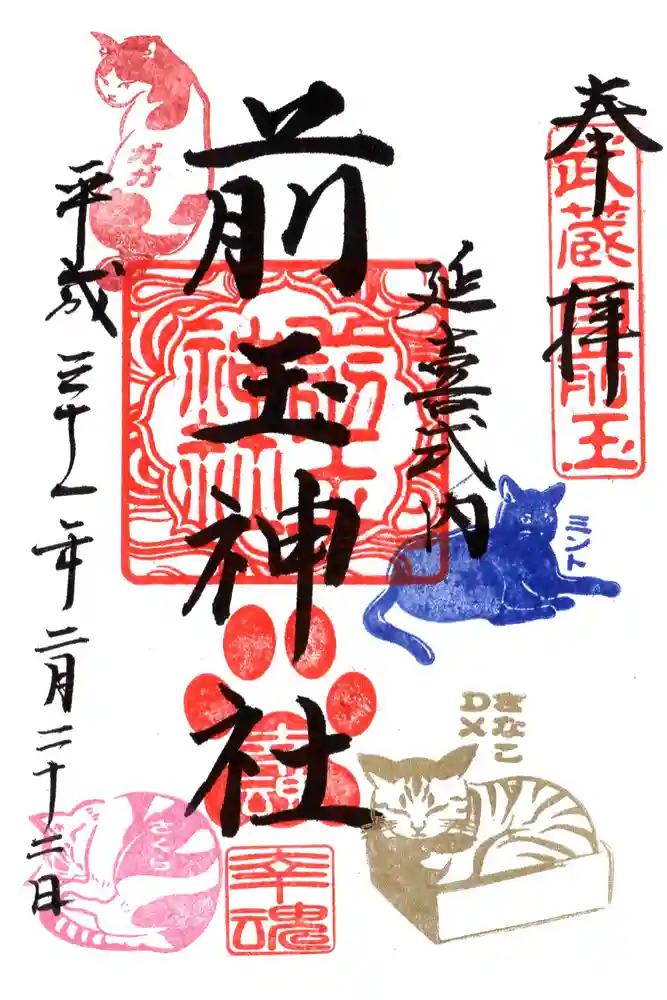 奉拝
武蔵國前玉
延喜式内
前玉神社
前玉神社
平成三十一年二月二十三日
ガガ
ミント
きなこ
DX
さくら
幸魂